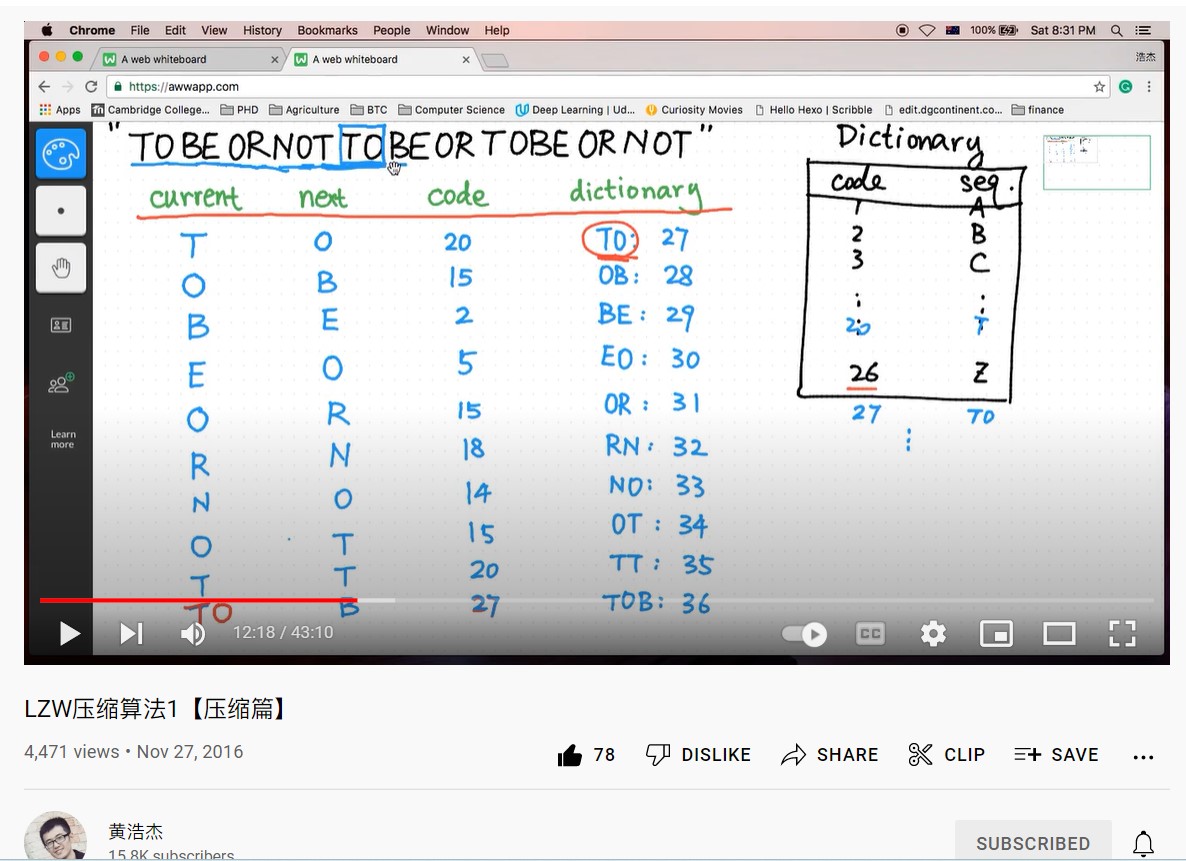 Chrome File Edit View History Bookmarks People Window Help 100% Sat 8:31 PM
A web whiteboard A web whiteboard 浩杰
https://awwapp.com
Apps Cambridge College... PHD Agriculture BTC Computer Science Deep Learning | Ud... Curiosity Movies Hello Hexo | Scribble edit.dgcontinent.co... finance
"TO BE OR NOT TO BE OR TO BE OR NOT" Dictionary
current next code dictionary code seq.
1 A
T O 20 TO: 27 2 B
O B 15 OB: 28 3 C
B E 2 BE: 29 20 T
E O 5 EO: 30 26 Z
O R 15 OR: 31 27 TO
R N 18 RN: 32
N O 14 NO: 33
O T 15 OT: 34
T T 20 TT: 35
TO B 27 TOB: 36
Learn
more
12:18 / 43:10 CC
LZW压缩算法1【压缩篇】
4,471 views • Nov 27, 2016 78 DISLIKE SHARE CLIP SAVE ...
黄浩杰
15.8K subscribers
SUBSCRIBED